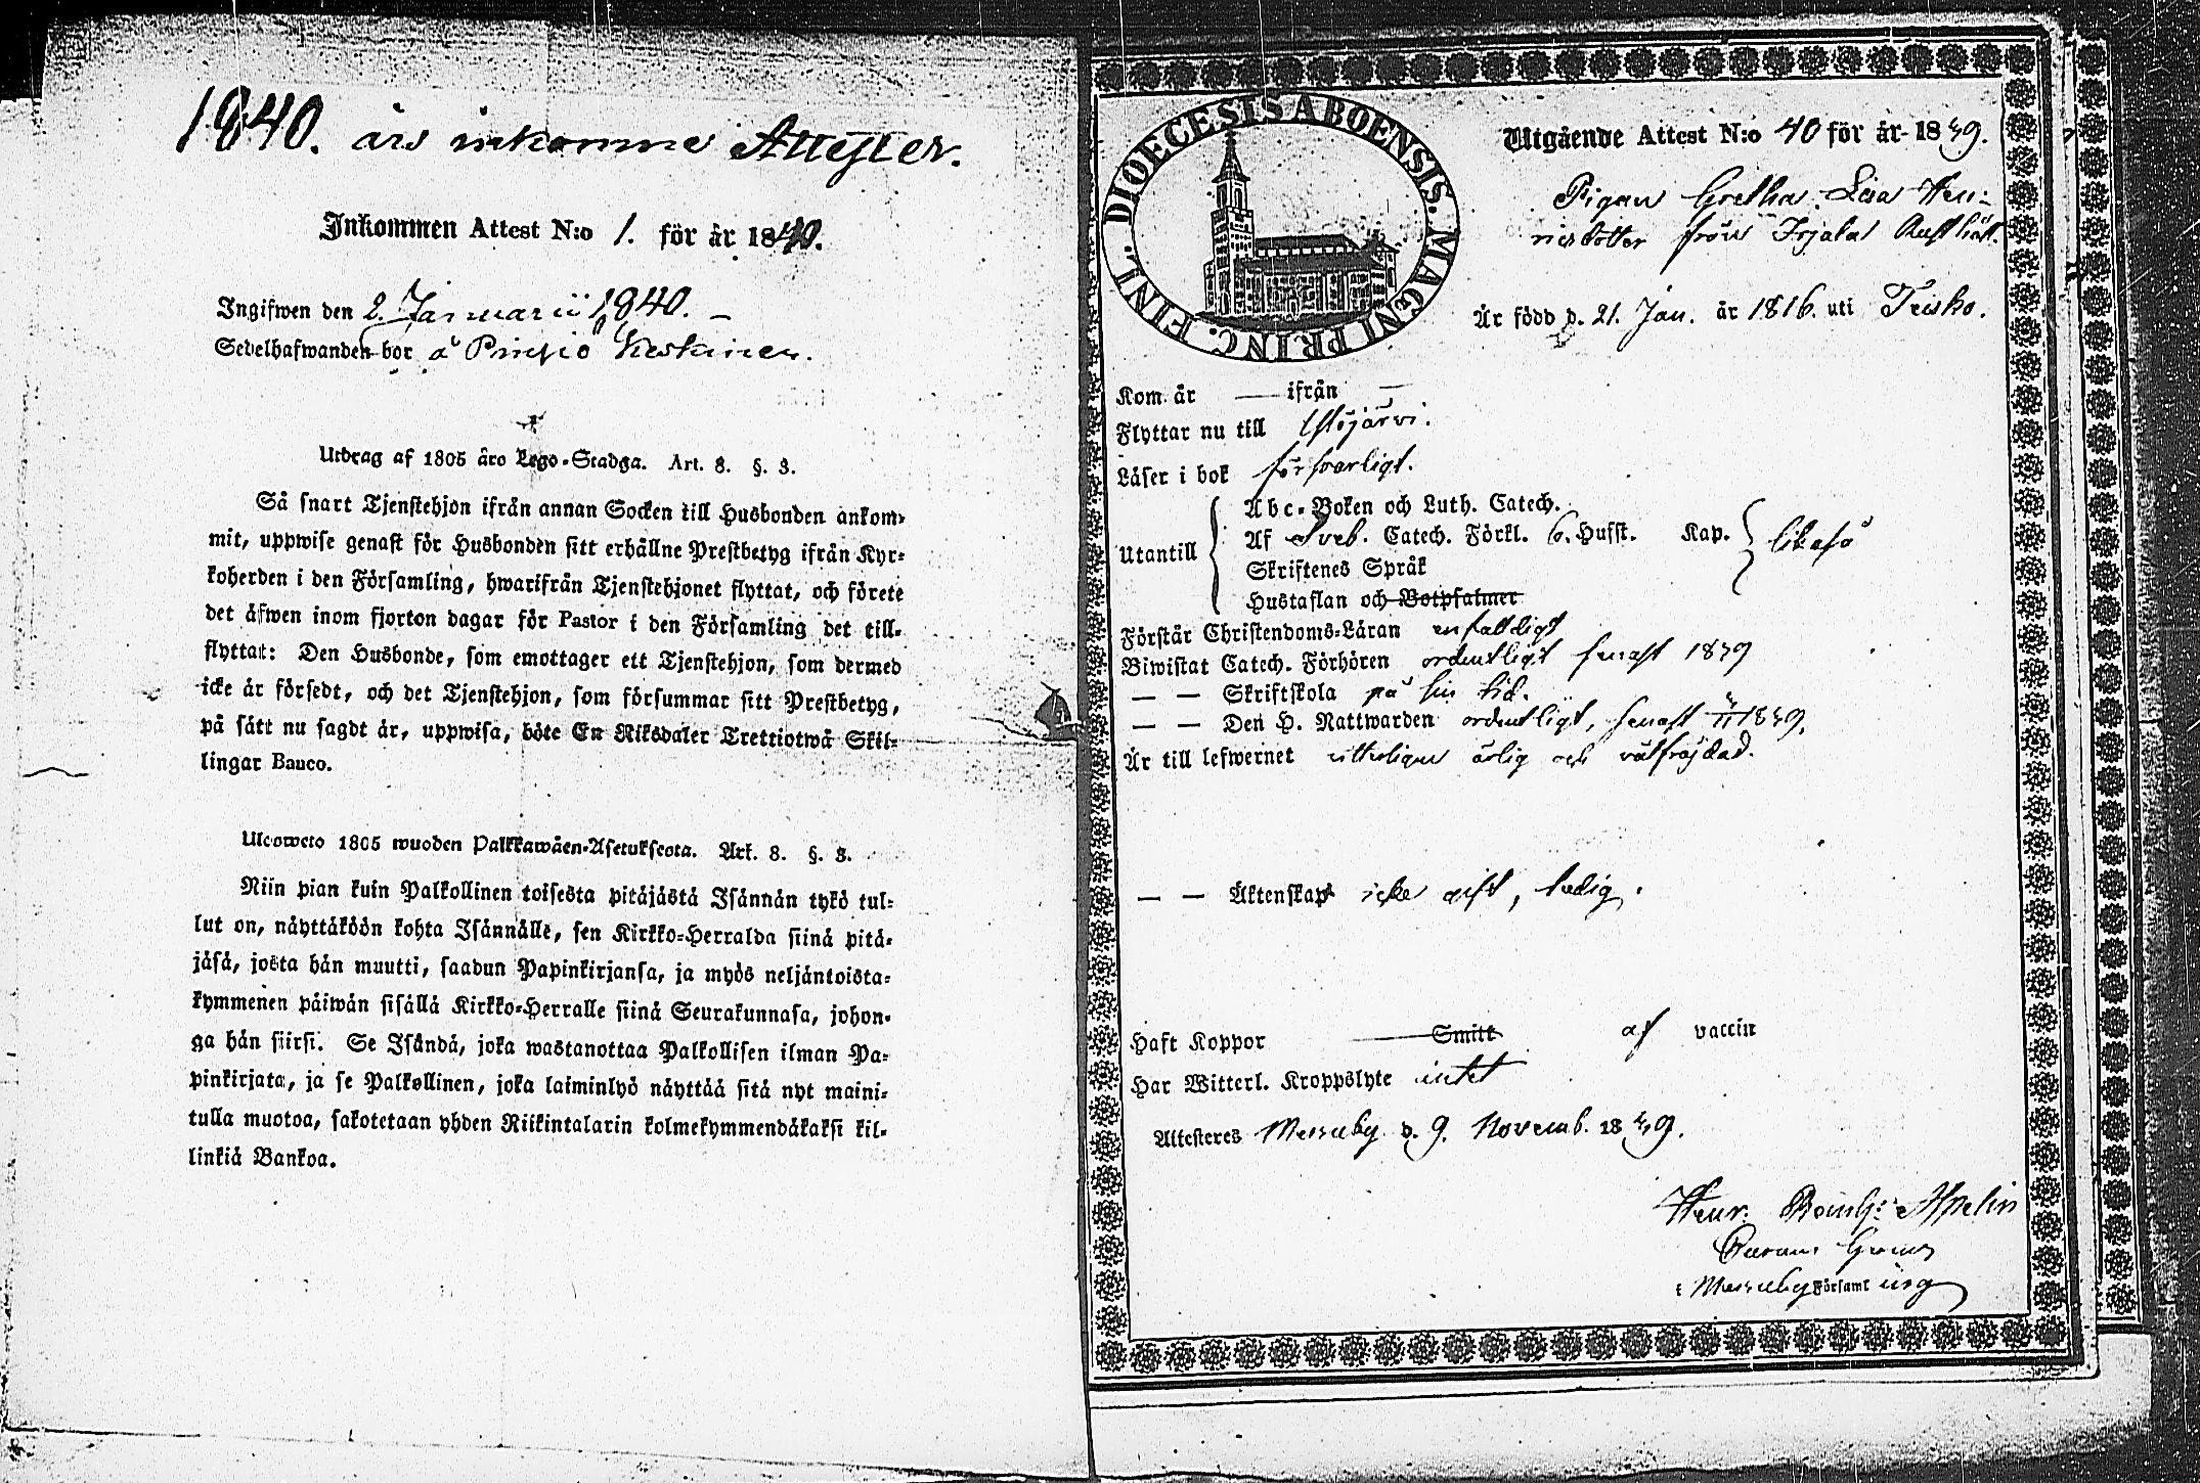 1840. års inkomne Attester.
Inkommen Attest N:o 1. för år 1840.
Ingifwen den 2. Januarii 1840. –
Sedelhafwanden bor å Pinsiö Keskinen.
Utdrag af 1805 års Lego-Stadga. Art. 8. §. 3.
Så snart Tjenstehjon ifrån annan Socken till Husbonden ankom-
mit, uppwise genast för Husbonden sitt erhållne Prestbetyg ifrån Kyr-
koherden i den Församling, hwarifrån Tjenstehjonet flyttat, och förete
det äfwen inom fjorton dagar för Pastor i den Församling det till-
flyttat: Den Husbonde, som emottager ett Tjenstehjon, som dermed
icke är försedt, och det Tjenstehjon, som försummar sitt Prestbetyg,
på sätt nu sagdt är, uppwisa, böte En Riksdaler Trettiotwå Skil-
lingar Banco.
Ulosweto 1805 wuoden Palkkawäen-Asetuksesta. Art. 8. §. 3.
Niin pian kuin Palkollinen toisesta pitäjästä Isännän tykö tul-
lut on, näyttäköön kohta Isännälle, sen Kirkko-Herralda siinä pitä-
jäsä, josta hän muutti, saadun Papinkirjansa, ja myös neljäntoista-
kymmenen päiwän sisällä Kirkko-Herralle siinä Seurakunnasa, johon-
ga hän siirsi. Se Isändä, joka wastanottaa Palkollisen ilman Pa-
pinkirjata, ja se Palkollinen, joka laiminlyö näyttää sitä nyt maini-
tulla muotoa, sakotetaan yhden Riikintalarin kolmekymmendäkaksi kil-
linkiä Bankoa.
DIOECESIS ABOENSIS. MAGNI PRINC. FINL.
Utgående Attest N:o 40 för år 1839.
Pigan Gretha Lisa Hen-
ricsdotter från Irjala Rusthåll.
Är född d. 21. Jan. år 1816. uti Teisko.
Kom år — ifrån —
Flyttar nu till Ylöjärvi.
Läser i bok försvarligt.
Utantill
Abc-Boken och Luth. Catech.
Af Sveb. Catech. Förkl. 6. Hufst. Kap. likaså
Skriftenes Språk
Hustaflan och Botpsalmer
Förstår Christendoms-Läran enfaldigt
Biwistat Catech. Förhören ordentligt senast 1839
— — Skriftskola på sin tid.
— — Den H. Nattwarden ordentligt, senast 1839.
Är till lefwernet witterligen ärlig och välfräjdad.
— — Äktenskap icke gift, ledig.
Haft Koppor Smitt af vaccin
Har Witterl. Kroppslyte intet
Attesteres Messuby d. 9. Novemb. 1839.
Henr. Reinh: Aspelin
i Messuby Församling